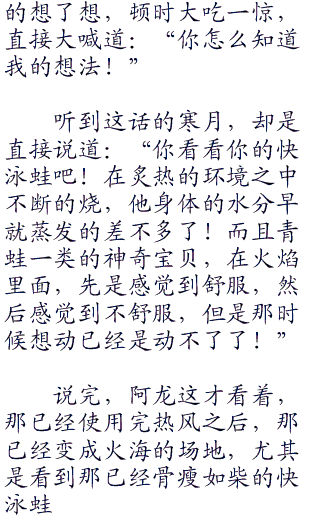 的想了想，顿时大吃一惊，
直接大喊道：“你怎么知道
我的想法！”
听到这话的寒月，却是
直接说道：“你看看你的快
泳蛙吧！在炙热的环境之中
不断的烧，他身体的水分早
就蒸发的差不多了！而且青
蛙一类的神奇宝贝，在火焰
里面，先是感觉到舒服，然
后感觉到不舒服，但是那时
候想动已经是动不了了！”
说完，阿龙这才看着，
那已经使用完热风之后，那
已经变成火海的场地，尤其
是看到那已经骨瘦如柴的快
泳蛙